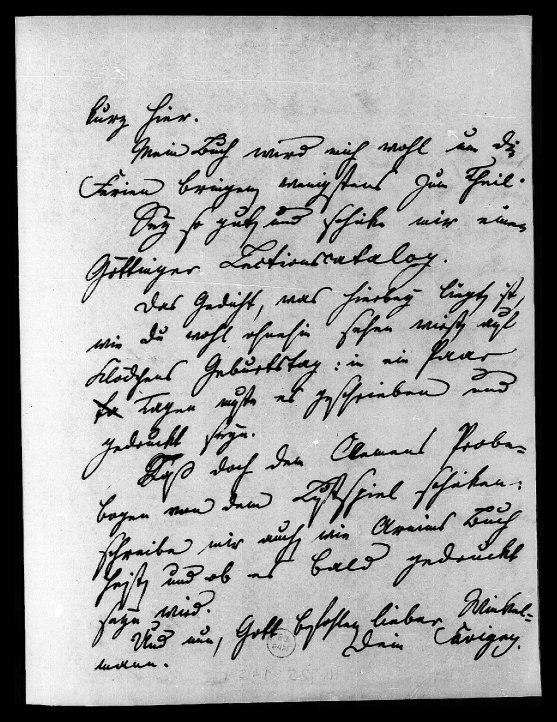 kurz hier.
Mein Buch wird mich wohl um die
Ferien bringen wenigstens zum Theil.
Sey so gut und schicke mir einen
Göttinger Lectionscatalog.
Das Gedicht, was hierbey liegt ist,
wie du wohl ohnehin sehen wirst auf
Klödchens Geburtstag: in ein Paar
Tagen muste es geschrieben und
gedruckt seyn.
Laß doch den Clemens Probe-
bogen von dem Lustspiel schicken:
schreibe mir auch wie Arnims Buch
heist und ob es bald gedruckt
seyn wird.
Und nun, Gott befohlen lieber Winkel-
mann. Dein Savigny.